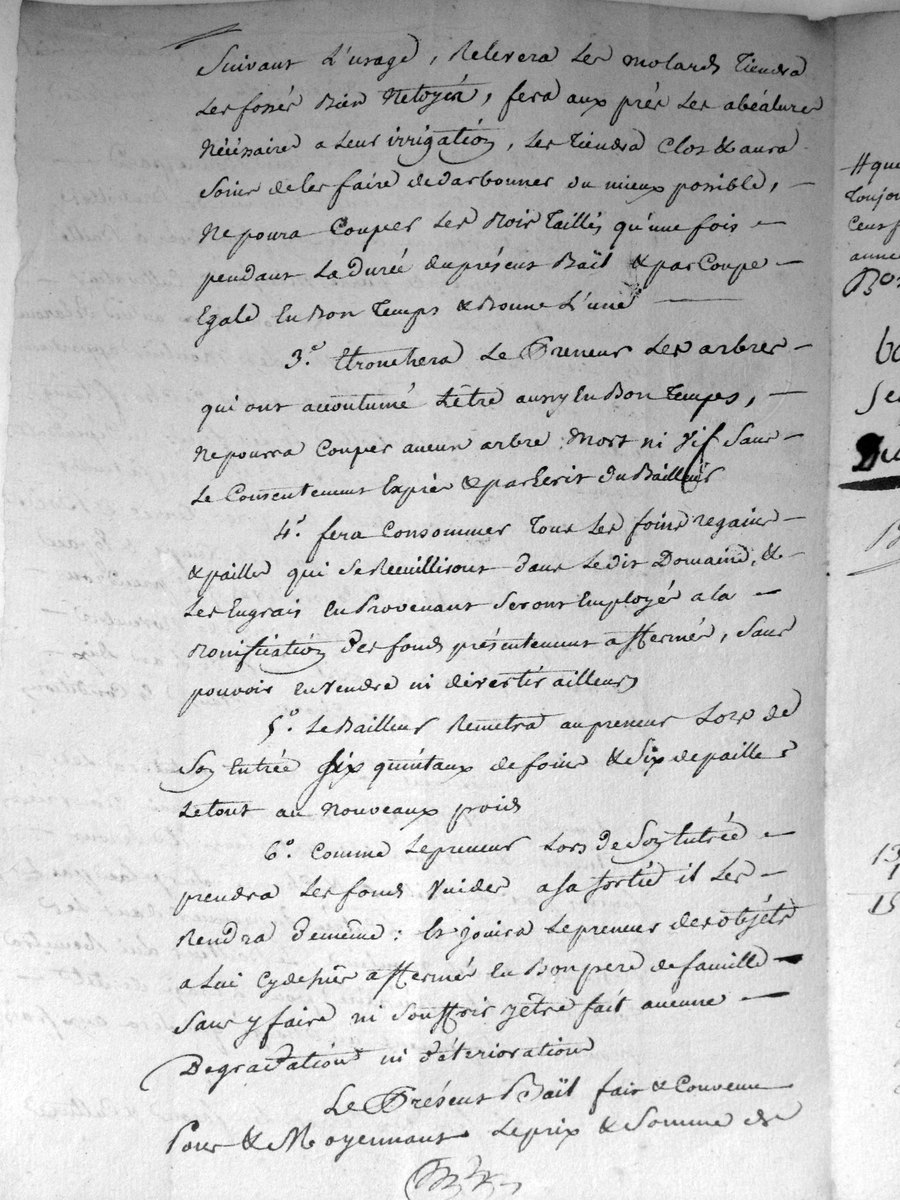 Suivant L'usage, Relevera Les molards Tiendra
Les fossés Bien Netoyés, fera aux prés Les abéalures
Nécéssaires a Leur irrigation, Les Tiendra Clos & aura
Soins de les faire dedarbonner du mieux possible, —
Ne poura Couper Les Bois Taillis qu'une fois —
pendant La Durée du présent Baïl & par Coupe —
Egale En Bon Temps & Bonne L'une —
3.o Etronchera Le Preneur Les arbres —
qui ont accoutumé L'être aussy En Bon Temps, —
Ne pourra Couper aucun arbre Mort ni Vif Sans —
Le Consentement Exprès & par Ecrit Du Bailleur
4.o fera Consommer Tous Les foins regains —
& pailles qui Se Reeuilliront Dans Le dit Domaine, & —
Les Engrais En Provenant Seront Employés a la —
Bonification Des fonds présentement affermés, Sans
pouvoir en Vendre ni divertir ailleurs
5.o Le Bailleur Remetra au preneur Lors de
Son Entrée Six quintaux de foins & Six de paille
Le tout au Nouveaux poids
6.o Comme Le preneur Lors De Son Entrée —
prendra Les fonds Vuides a Sa Sortie il Les —
Rendra De même : Et jouira Le preneur des objéts
a Lui Cy deßus affermés En Bon pere de famille —
Sans y faire ni Souffrir y être fait aucune —
Degradation ni détérioration
Le Présent Baïl fait & Convenu
Pour & Moyennant Le prix & Somme de
#que
Toujou
Cens f
année
Bo
bo
Se
13
1
15